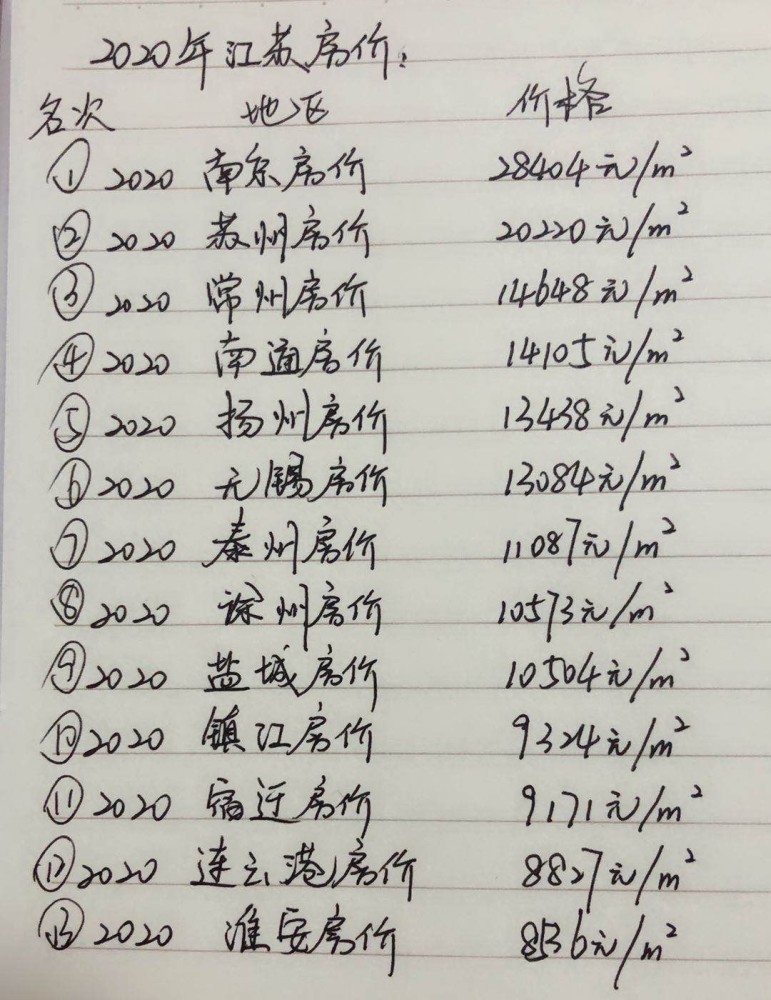 2020年江苏房价:
名次 地区 价格
① 2020 南京房价 28404元/m²
② 2020 苏州房价 20220元/m²
③ 2020 常州房价 14648元/m²
④ 2020 南通房价 14105元/m²
⑤ 2020 扬州房价 13438元/m²
⑥ 2020 无锡房价 13084元/m²
⑦ 2020 泰州房价 11087元/m²
⑧ 2020 徐州房价 10573元/m²
⑨ 2020 盐城房价 10504元/m²
⑩ 2020 镇江房价 9324元/m²
⑪ 2020 宿迁房价 9171元/m²
⑫ 2020 连云港房价 8827元/m²
⑬ 2020 淮安房价 8536元/m²